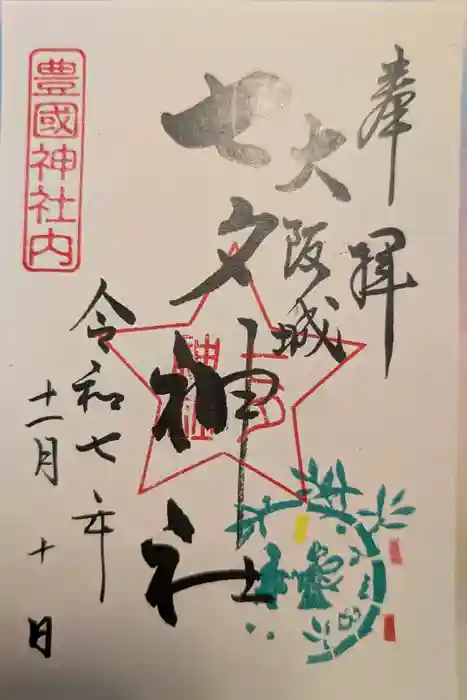 奉拝
大阪城
七夕神社
令和七年
十一月十日
豊國神社内